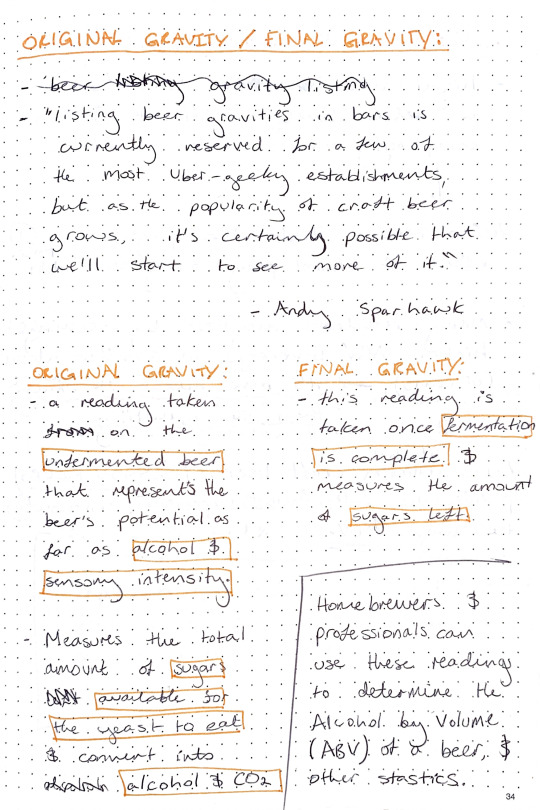 ORIGINAL GRAVITY / FINAL GRAVITY:
- beer gravity listing
- "Listing beer gravities in bars is
currently reserved for a few of
the most uber-geeky establishments,
but as the popularity of craft beer
grows, it's certainly possible that
we'll start to see more of it."
- Andy Sparhawk
ORIGINAL GRAVITY:
- a reading taken
from on the
unfermented beer
that represent's the
beer's potential as
far as alcohol $
sensory intensity.
- Measures the total
amount of sugars
available for
the yeast to eat
$ convent into
alcohol $ CO2
FINAL GRAVITY:
- this reading is
taken once fermentation
is complete $
measures the amount
of sugars left
Homebrewers $
professionals can
use these readings
to determine the
Alcohol by Volume
(ABV) of a beer, $
other stastics.
34